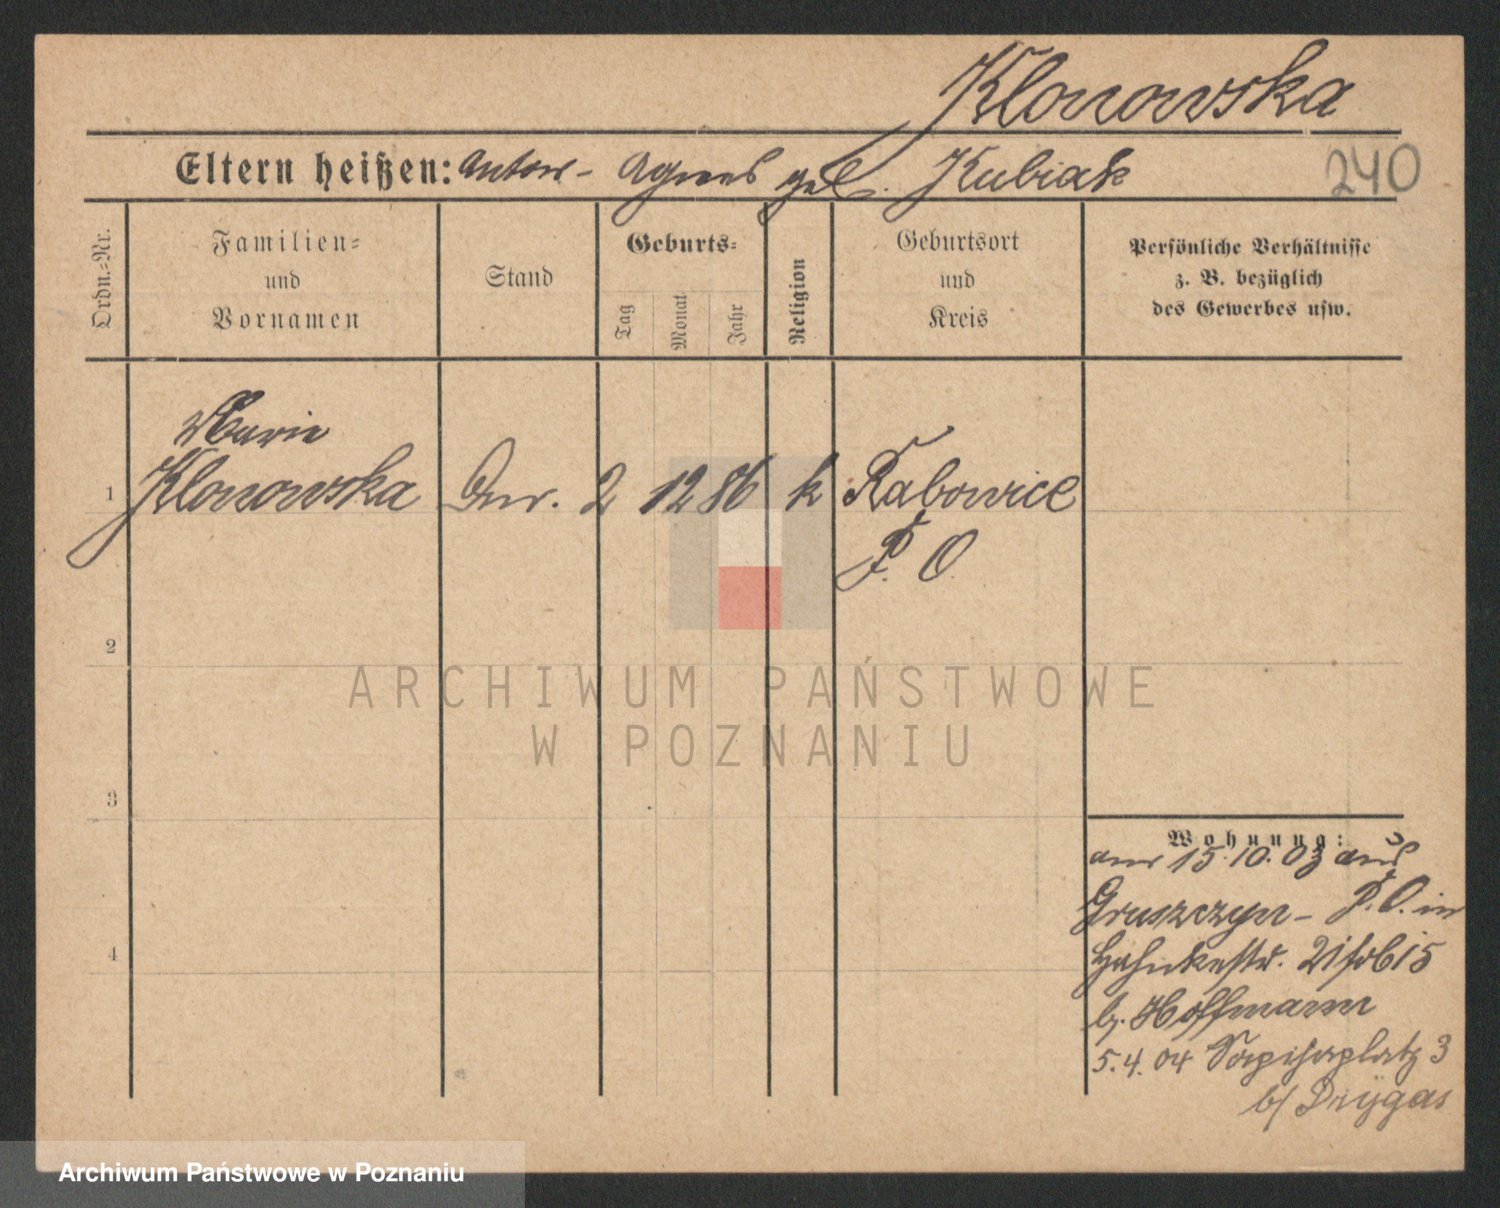 Klonowska
Eltern heißen: Anton - Agnes geb. Kubiak 240
Ordn.=Nr.
Familien=
und
Vornamen
Stand
Geburts=
Tag
Monat
Jahr
Religion
Geburtsort
und
Kreis
Persönliche Verhältnisse
z. B. bezüglich
des Gewerbes usw.
Marie
1 Klonowska 2 12 86 k Rabowice
P. O.
2
ARCHIWUM PAŃSTWOWE
W POZNANIU
3
Wohnung:
am 15.10.03 aus
Gruszczyn - P. O. in
b. Hoffmann
5.4.04 Sapihaplatz 3
b/ Drygas
4
Archiwum Państwowe w Poznaniu